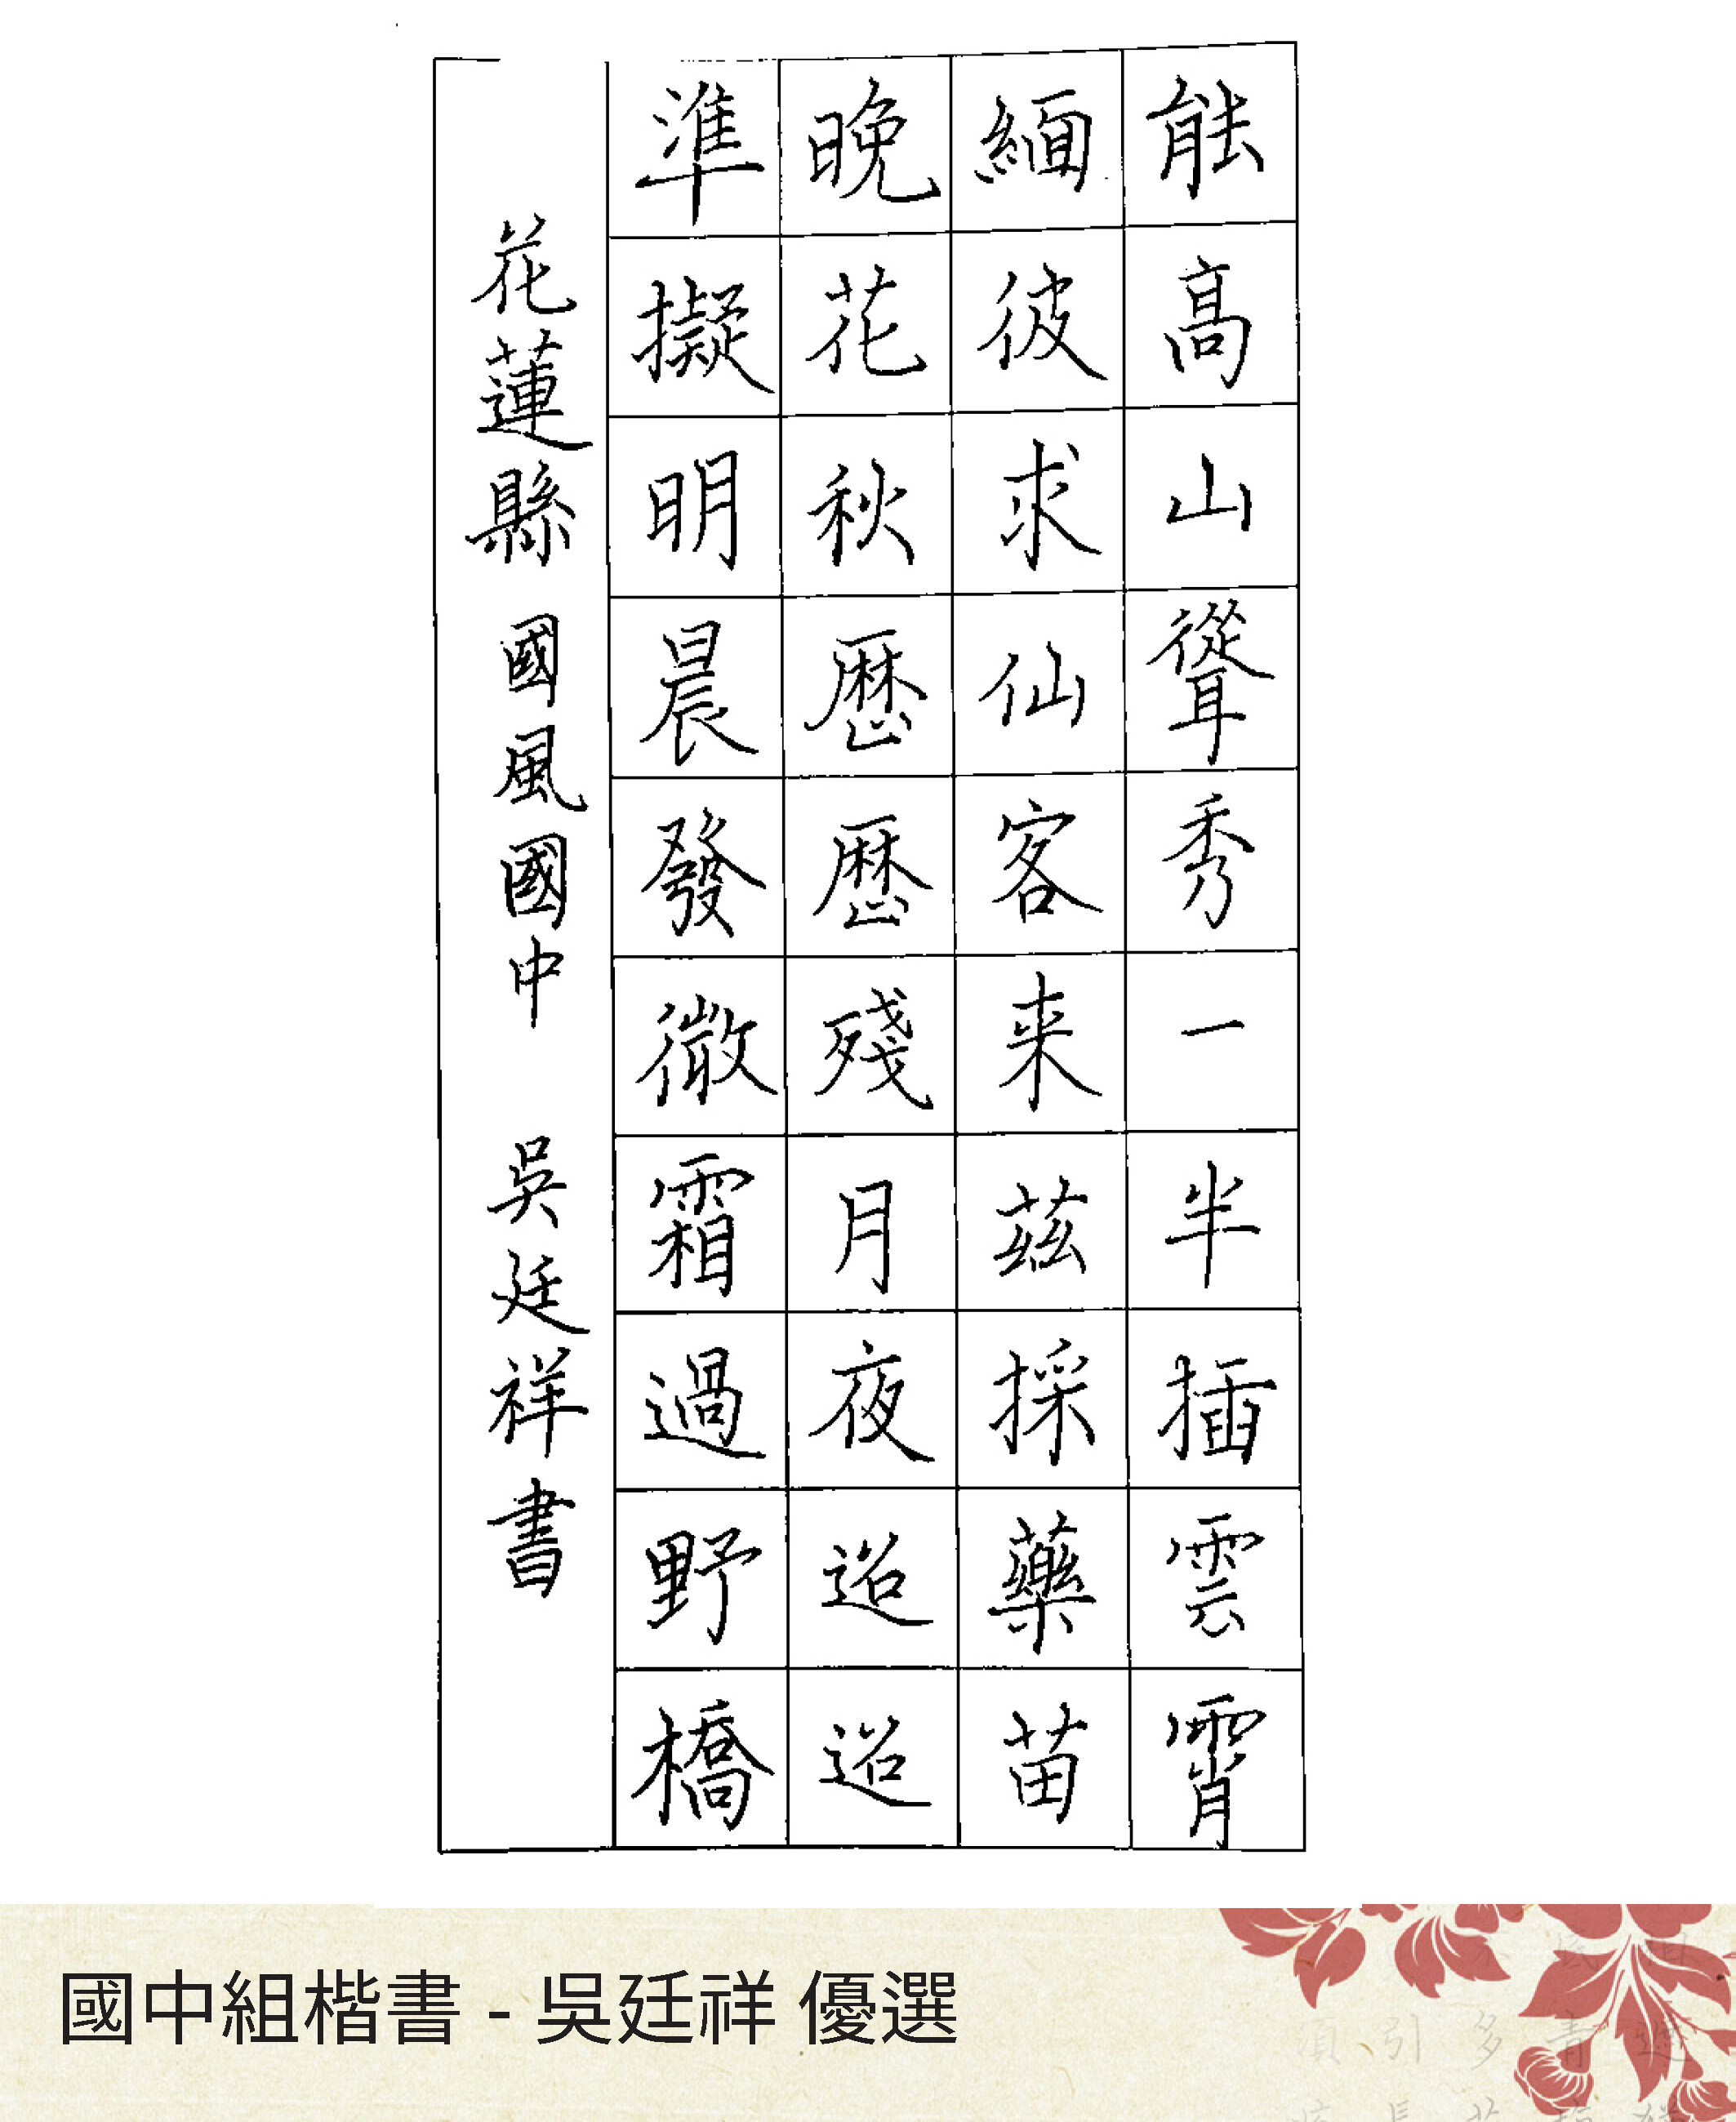 能高山聳秀一半插雲霄
緬彼求仙客来茲採藥苗
晚花秋歷歷殘月夜迢迢
準擬明晨發微霜過野橋
花蓮縣 國風國中 吳廷祥書
國中組楷書 - 吳廷祥 優選